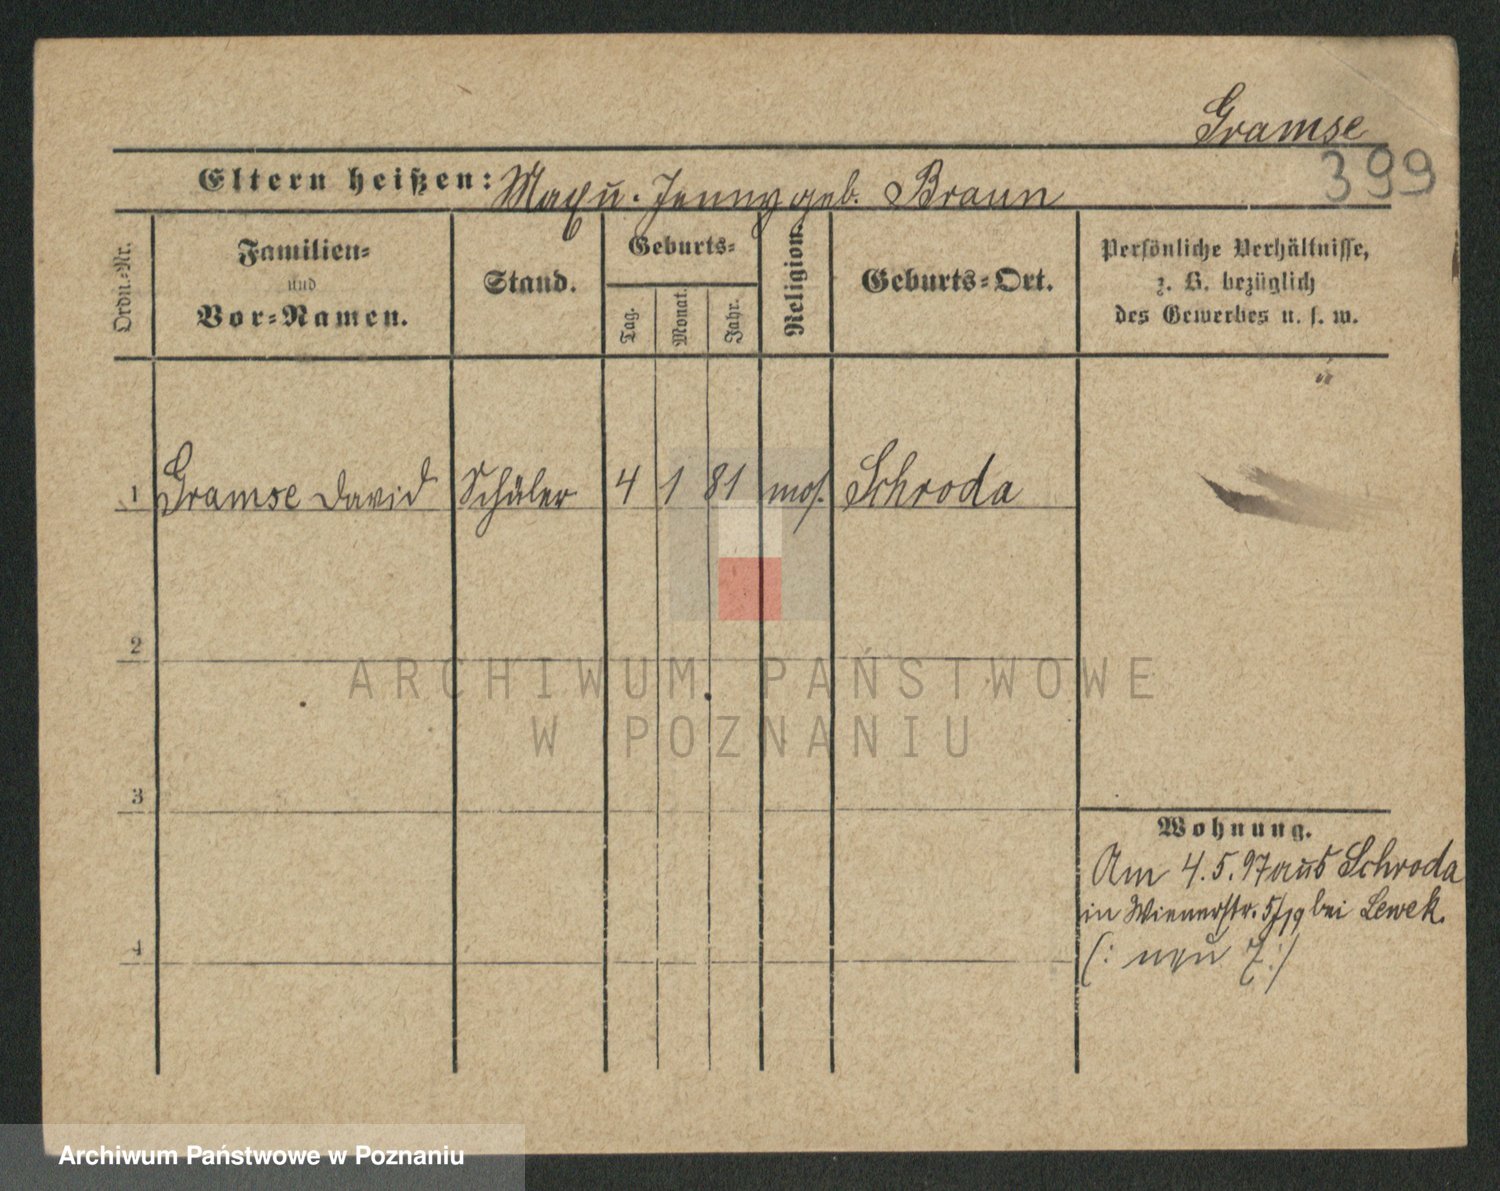 Gramse
399
Eltern heißen: Max u. Jenny geb. Braun
Ordn.-Nr.
Familien-
und
Vor-Namen.
Stand.
Geburts-
Tag.
Monat.
Jahr.
Religion.
Geburts-Ort.
Persönliche Verhältnisse,
z. B. bezüglich
des Gewerbes u. s. w.
1 Gramse David Schüler 4 1 81 mos. Schroda
2
3
4
Wohnung.
Am 4.5.97 aus Schroda
in Wienerstr. bei Lewek.
(: neu 7 :)
ARCHIWUM PAŃSTWOWE
W POZNANIU
Archiwum Państwowe w Poznaniu